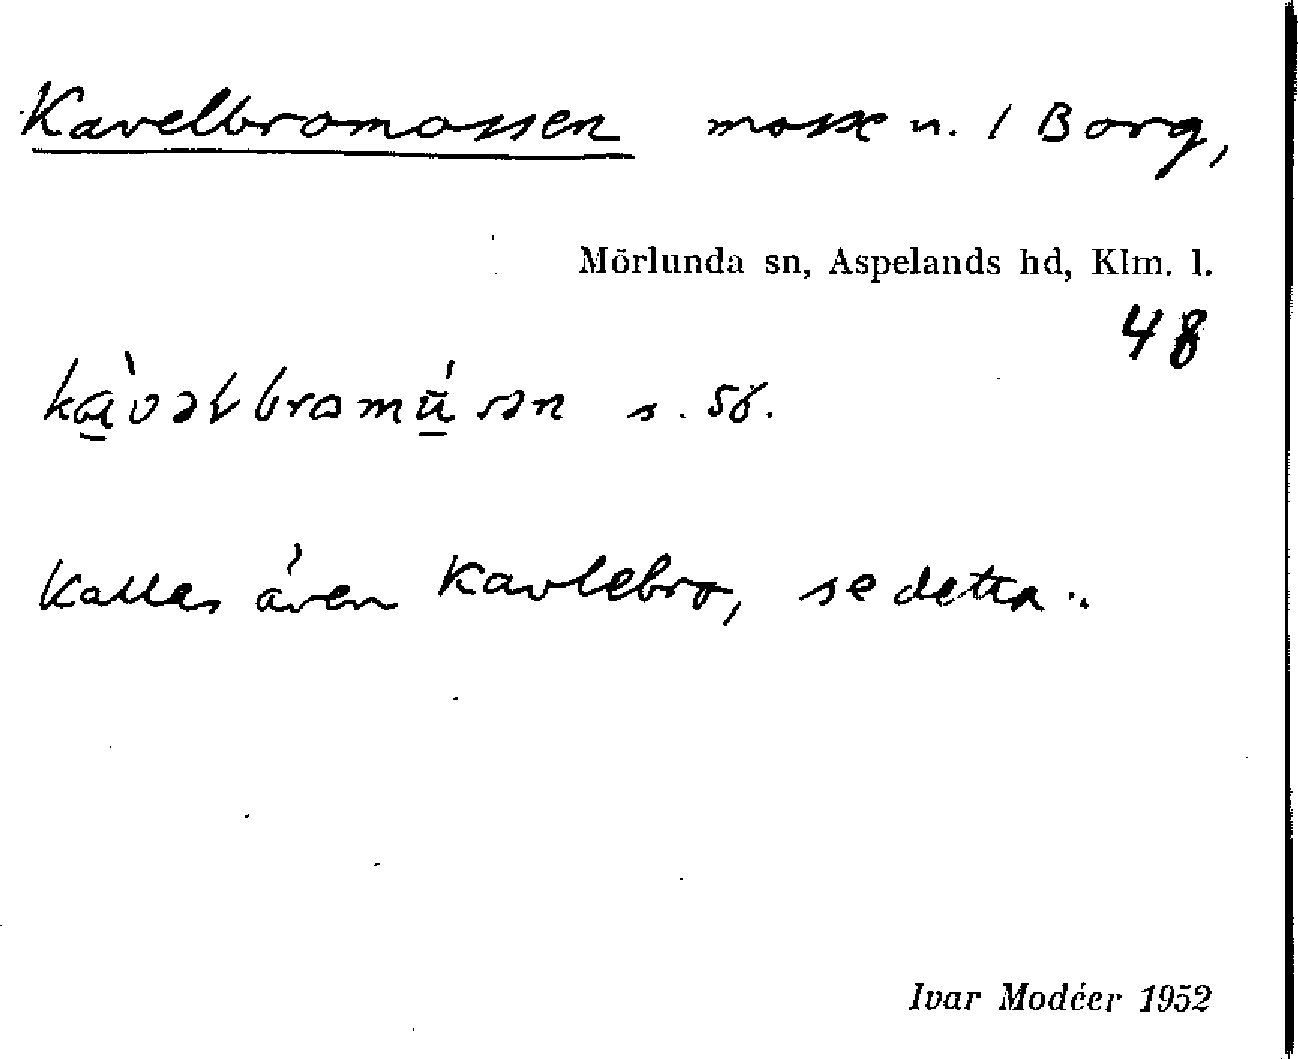 Kavelbromossen mosse n. / Borg,
Mörlunda sn, Aspelands hd, Klm. l.
48
kàvəlbromúsən s. sö.
Kallas även Kavlebro, se detta.
Ivar Modéer 1952